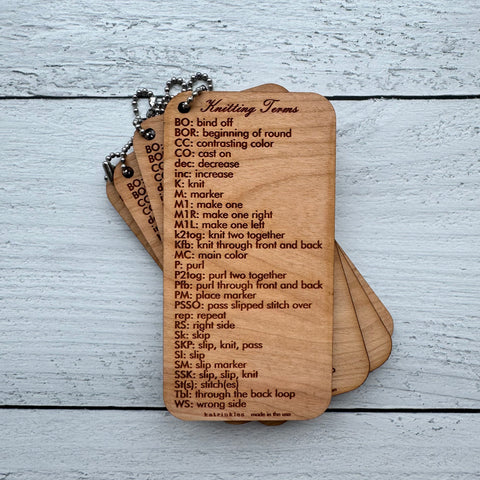 Knitting Terms
BO: bind off
BOR: beginning of round
CC: contrasting color
CO: cast on
dec: decrease
inc: increase
K: knit
M: marker
M1: make one
M1R: make one right
M1L: make one left
k2tog: knit two together
Kfb: knit through front and back
MC: main color
P: purl
P2tog: purl two together
Pfb: purl through front and back
PM: place marker
PSSO: pass slipped stitch over
rep: repeat
RS: right side
Sk: skip
SKP: slip, knit, pass
Sl: slip
SM: slip marker
SSK: slip, slip, knit
St(s): stitch(es)
Tbl: through the back loop
WS: wrong side
katrinkles made in the usa